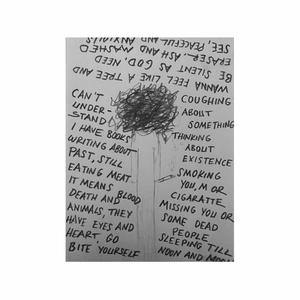 WANNA FEEL LIKE A TREE AND
BE SILENT AS GOD, NEED
ERASER.. ASH.. AND MASHED
SEE, PEACEFUL AND ANXIOUS
CAN'T
UNDER-
STAND
I HAVE BOOKS
WRITING ABOUT
PAST, STILL
EATING MEAT.
IT MEANS BLOOD
DEATH AND
ANIMALS, THEY
HAVE EYES AND
HEART. GO
BITE YOURSELF
COUGHING
ABOUT
SOMETHING
THINKING
ABOUT
EXISTENCE
SMOKING
YOU, M OR
CIGARATTE
MISSING YOU OR
SOME DEAD
PEOPLE
SLEEPING TILL
NOON AND